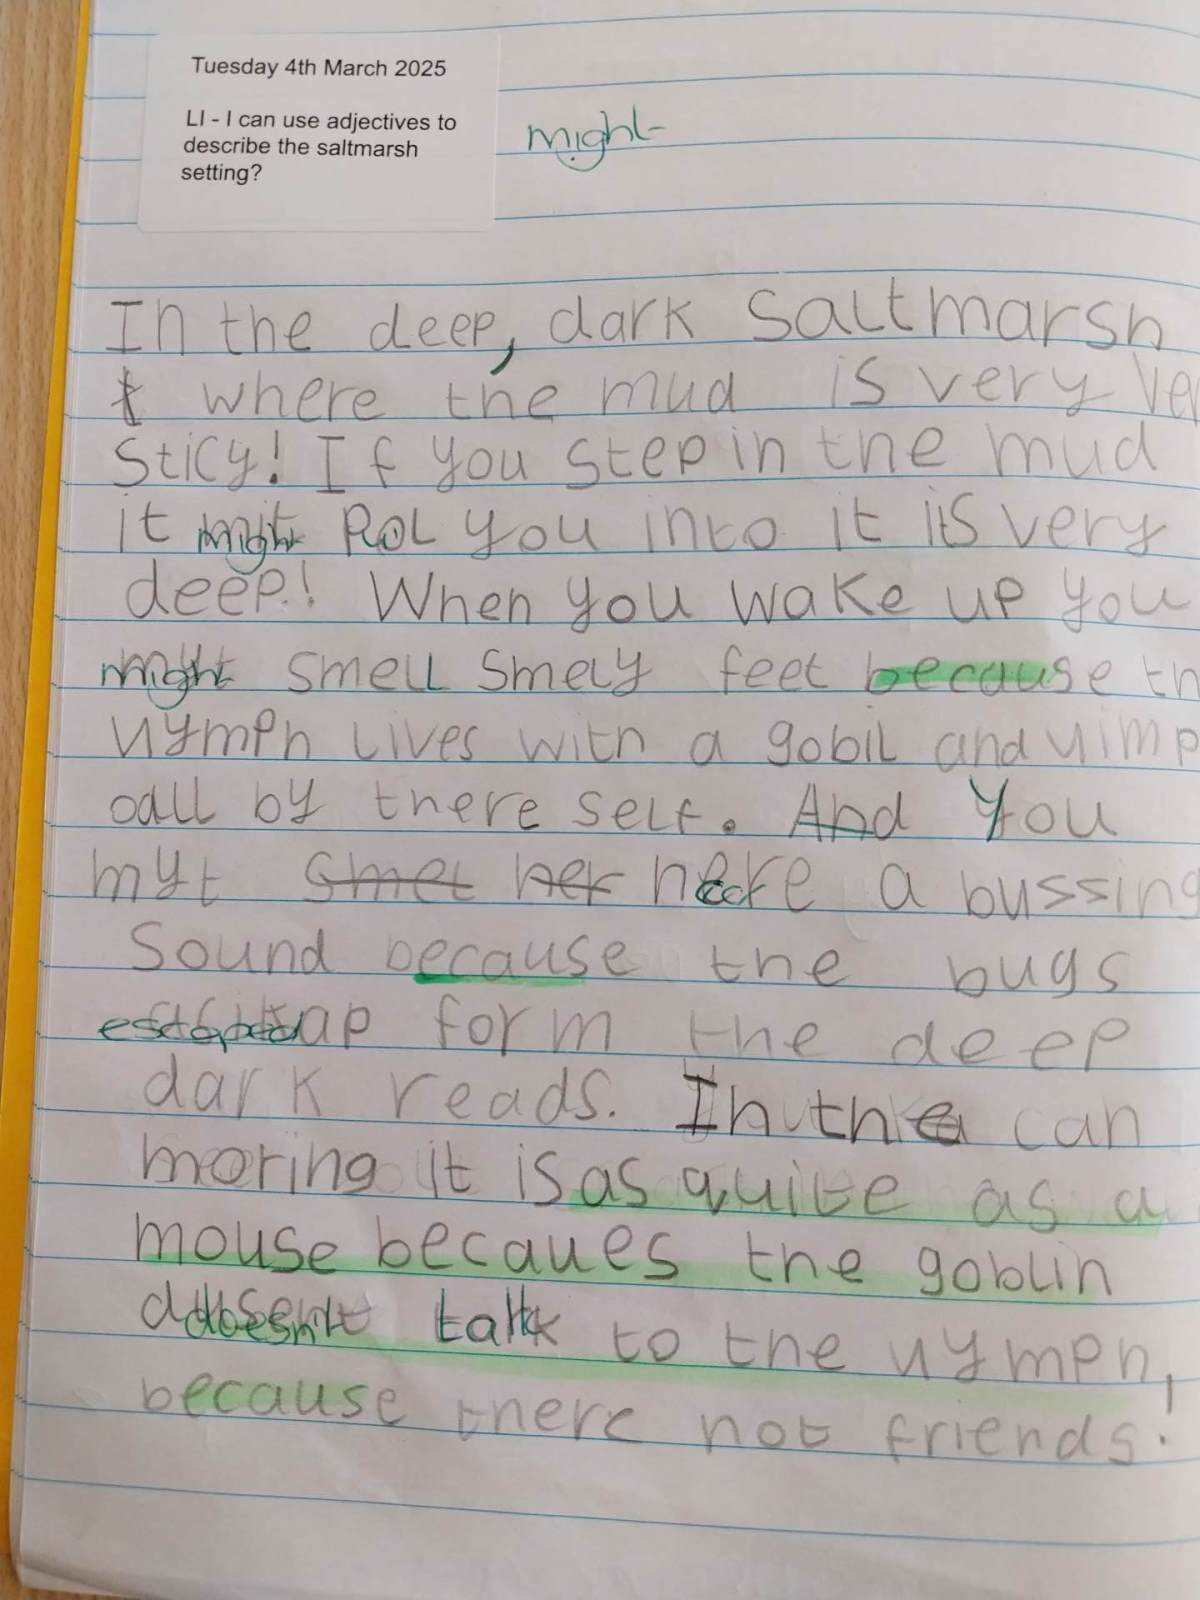 Tuesday 4th March 2025
LI - I can use adjectives to
describe the saltmarsh
setting?
might
In the deep, dark saltmarsh
where the mud is very
sticy! If you step in the mud
it might pol you into it is very
deep! When you wake up you
might smell smely feet because
nymph lives with a gobil and
oall by there self. And You
myt smet her here a bussing
sound because the bugs
form the deep
dark reads. In the can
moring it is as quite as a
mouse becaues the goblin
doesn't talk to the nymph,
because there not friends!